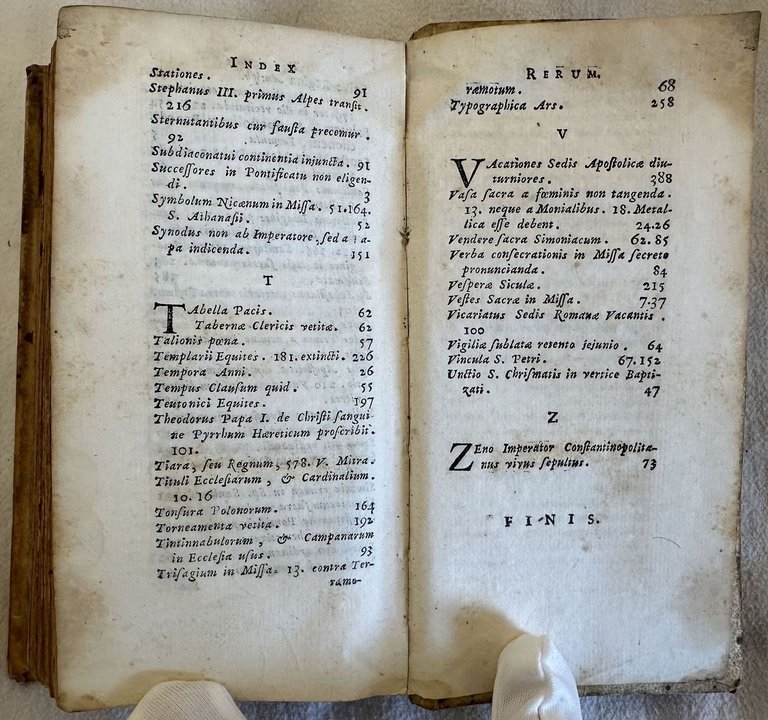 INDEX
Stationes. 91
Stephanus III. primus Alpes transit.
216
Sternutantibus cur fausta precemur.
92
Subdiaconatui continentia injuncta. 91
Successores in Pontificatu non eligen-
di. 3
Symbolum Nicænum in Missa. 51.164.
S. Athanasii. 52
Synodus non ab Imperatore, sed a Pa-
pa indicenda. 151
T
TAbella Pacis. 62
Tabernæ Clericis vetitæ. 62
Talionis pœna. 57
Templarii Equites. 181. extincti. 226
Tempora Anni. 26
Tempus Clausum quid. 55
Teutonici Equites. 197
Theodorus Papa I. de Christi sangui
ne Pyrrhum Hæreticum proscribit.
101.
Tiara, seu Regnum, 578. V. Mitra.
Tituli Ecclesiarum, & Cardinalium.
10. 16
Tonsura Polonorum. 164
Torneamenta vetita. 192
Tintinnabulorum, & Campanarum
in Ecclesia usus. 93
Trisagium in Missa, 13. contra Ter-
ramo-
RERUM.
ramotum. 68
Typographica Ars. 258
V
VAcationes Sedis Apostolicæ diu-
turniores. 388
Vasa sacra a fœminis non tangenda.
13. neque a Monialibus. 18. Metal-
lica esse debent. 24.26
Vendere sacra Simoniacum. 62.85
Verba consecrationis in Missa secreto
pronuncianda. 84
Vesperæ Siculæ. 215
Vestes Sacræ in Missa. 7.37
Vicariatus Sedis Romanæ Vacantis.
100
Vigiliæ sublatæ resento jejunio. 64
Vincula S. Petri. 67.152
Unctio S. Chrismatis in vertice Bapti-
zati. 47
Z
ZEno Imperator Constantinopolita-
nus vivus sepultus. 73
FINIS.